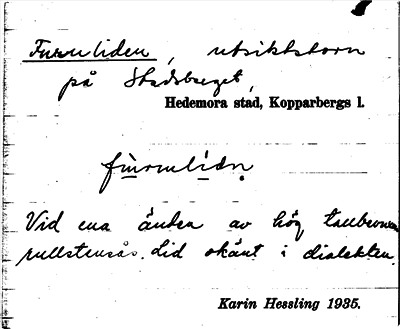 Furuliden, utsiktstorn
på Stadsberget,
Hedemora stad, Kopparbergs l.
fùrulìdn̥
Vid ena ändan av hög tallbevuxen
rullstensås. Lid okänt i dialekten.
Karin Hessling 1935.